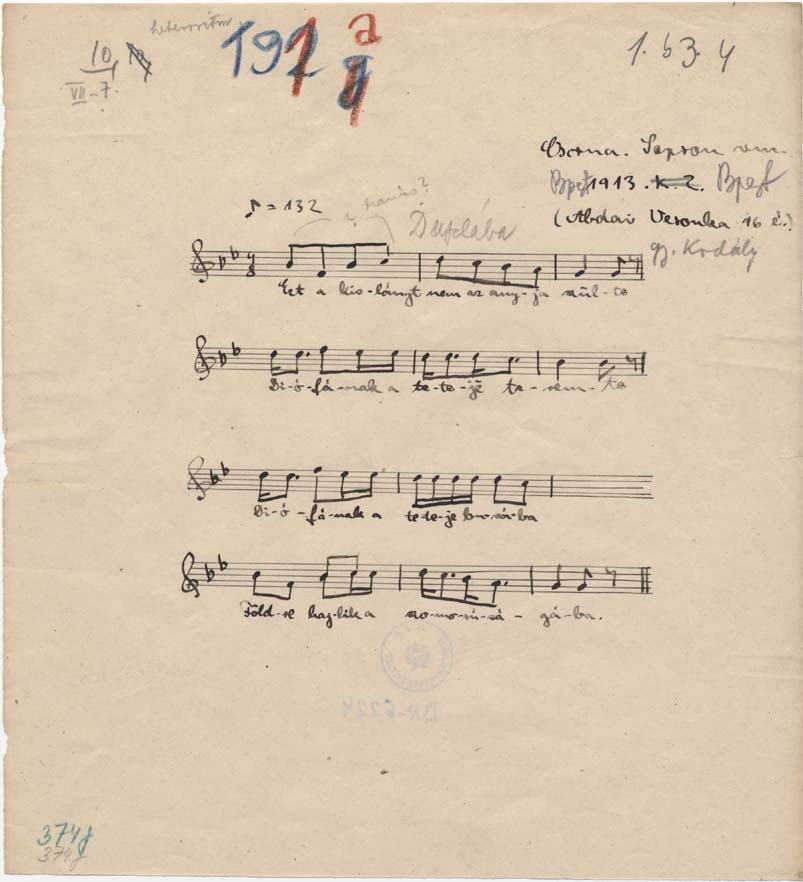 heteroritm.
10,
VII-7.
1. 63. 4
Csorna. Sopron vm.
Bpest 1913. K. Z. Bpest
(Abdai Veronka 16 é.)
gy. Kodály
♪ = 132
? hamis?
Ezt a kis-lányt nem az any-ja szül-te
Di-ó-fá-nak a te-te-jé te-rem-te
Di-ó-fá-nak a te-te-je bo-ró-ba
Föld-re haj-lik a szo-mo-rú-sá-gá-ba.
BR-6224
374g
374g